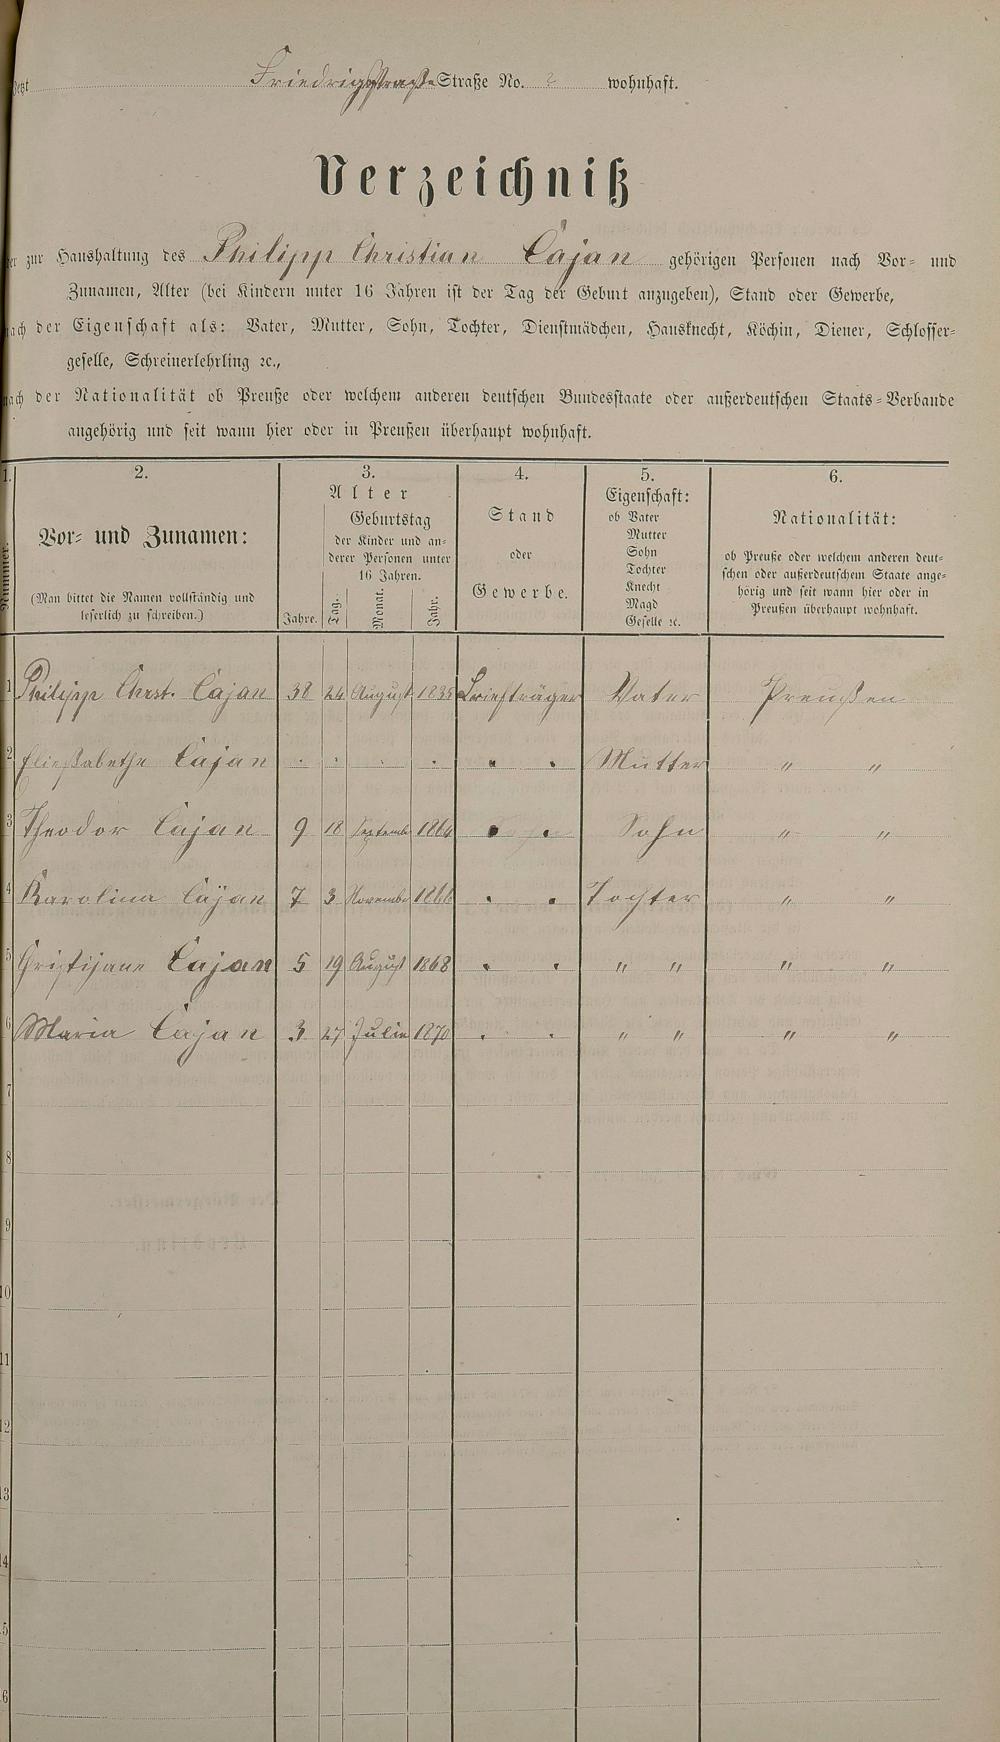 Jetzt Friedrigstraße Straße No. 2 wohnhaft.
Verzeichniß
der zur Haushaltung des Philipp Christian Cajan gehörigen Personen nach Vor- und
Zunamen, Alter (bei Kindern unter 16 Jahren ist der Tag der Geburt anzugeben), Stand oder Gewerbe,
nach der Eigenschaft als: Vater, Mutter, Sohn, Tochter, Dienstmädchen, Hausknecht, Köchin, Diener, Schlosser-
geselle, Schreinerlehrling ꝛc.,
nach der Nationalität ob Preuße oder welchem anderen deutschen Bundesstaate oder außerdeutschen Staats-Verbande
angehörig und seit wann hier oder in Preußen überhaupt wohnhaft.
1. 2. 3. 4. 5. 6.
Nummer.
Vor- und Zunamen:
(Man bittet die Namen vollständig und
leserlich zu schreiben.)
Alter
Jahre.
Geburtstag
der Kinder und an-
derer Personen unter
16 Jahren.
Tag. Monat. Jahr.
Stand
oder
Gewerbe.
Eigenschaft:
ob Vater
Mutter
Sohn
Tochter
Knecht
Magd
Geselle ꝛc.
Nationalität:
ob Preuße oder welchem anderen deut-
schen oder außerdeutschem Staate ange-
hörig und seit wann hier oder in
Preußen überhaupt wohnhaft.
1 Philipp Chrst. Cajan 38 24 August 1835 Briefträger Vater Preußen
2 Eliesabethe Cajan . . . . . . Mutter " "
3 Theodor Cajan 9 18 September 1864 . . Sohn " "
4 Karolina Cajan 7 3 November 1866 . . Tochter " "
5 Cristijane Cajan 5 19 August 1868 . . " " " "
6 Maria Cajan 3 27 Julie 1870 . . " " " "
7
8
9
10
11
12
13
14
15
16